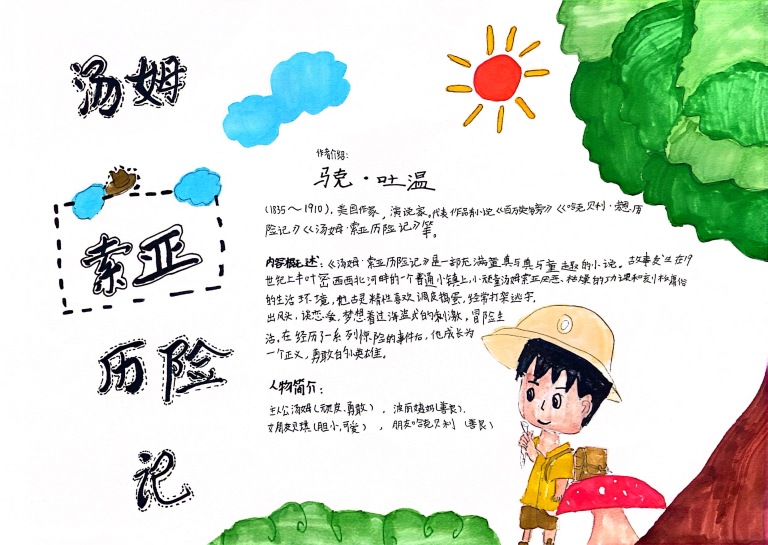 汤姆
索亚
历险
记
作者介绍:
马克·吐温
(1835~1910),美国作家,演说家。代表作品有小说《百万英镑》《哈克贝利·费恩历
险记》《汤姆·索亚历险记》等。
内容概述:《汤姆·索亚历险记》是一部充满童真与童趣的小说。故事发生在19
世纪上半叶密西西北河畔的一个普通小镇上,小顽童汤姆索亚厌恶枯燥的功课和刻板庸俗
的生活环境,他古灵精怪喜欢调皮捣蛋,经常打架逃学
出风头,谈恋爱,梦想着过海盗式的刺激,冒险生
活,在经历了一系列惊险的事件后,他成长为
一个正义,勇敢的小英雄。
人物简介:
主人公汤姆(顽皮.勇敢),波丽姨妈(善良).
女朋友贝琪(胆小,可爱),朋友哈克贝利(善良)